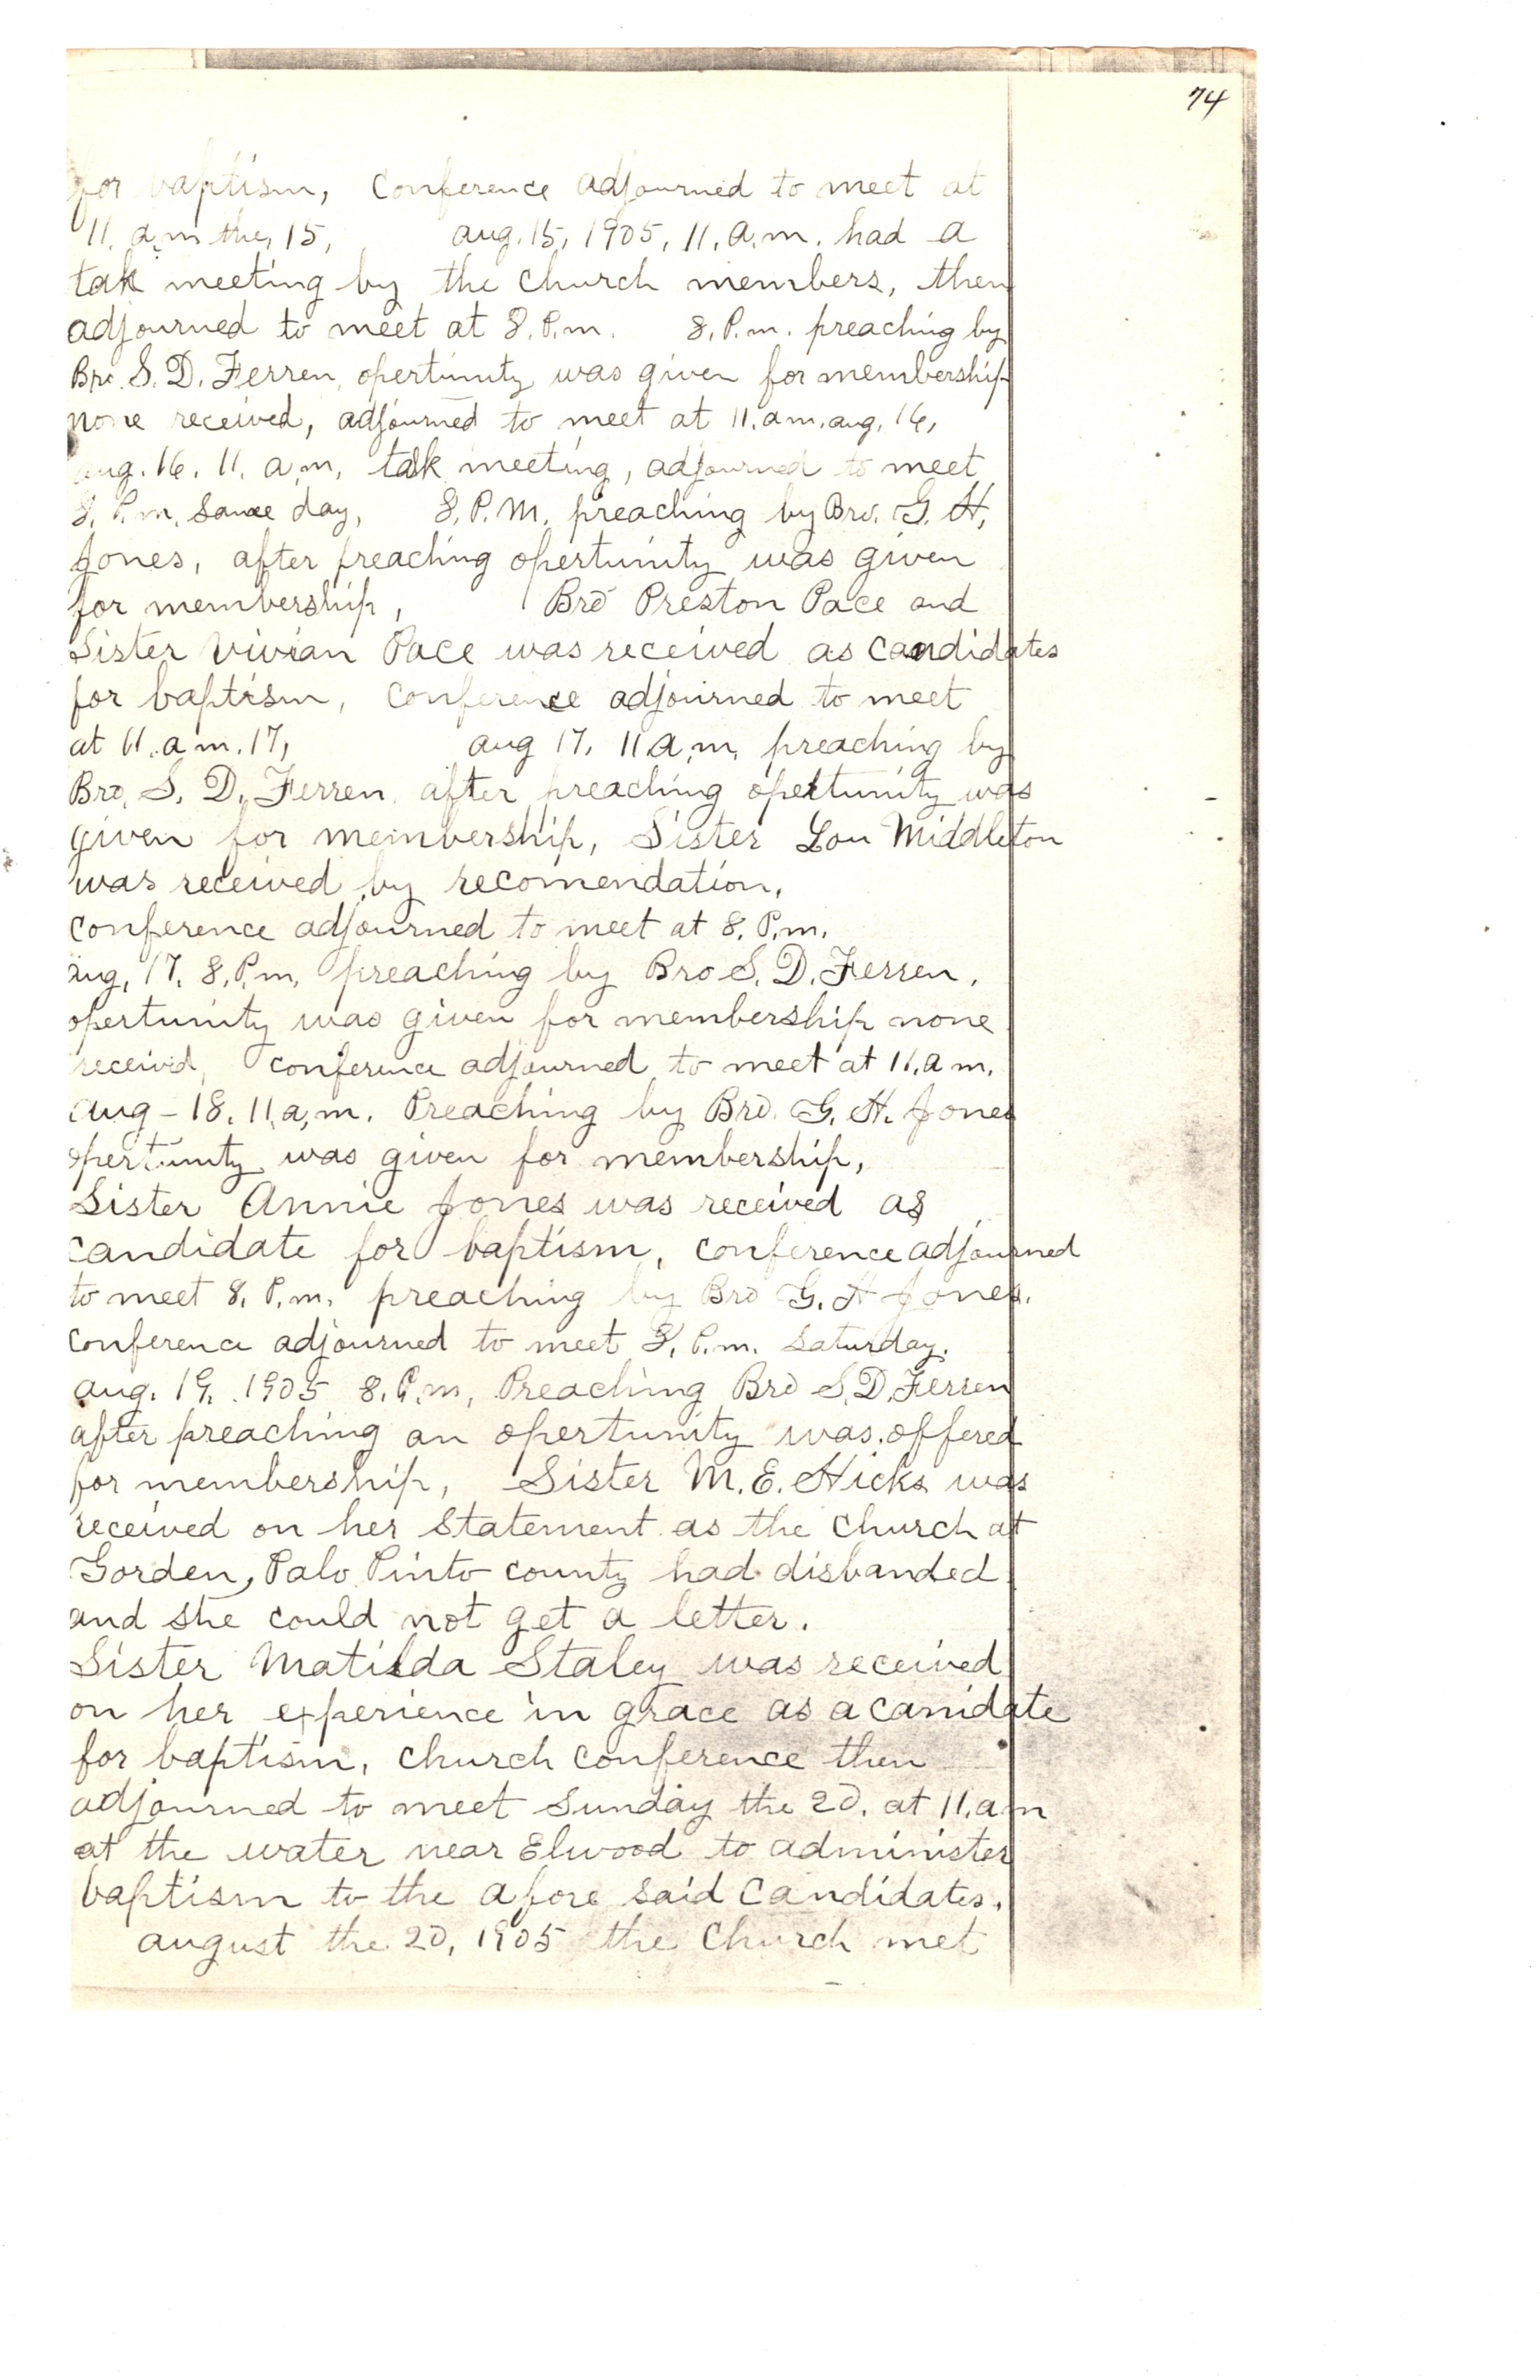 74
for baptism, Conference adjourned to meet at
11. a.m. the, 15, aug. 15, 1905, 11. a.m. had a
talk meeting by the church members, then
adjourned to meet at 8. P.m. 8. P.m. preaching by
Bro. S. D. Ferren, opertunity was given for membership
none received, adjourned to meet at 11. a m. aug. 16,
aug. 16. 11. a.m, talk meeting, adjourned to meet
8. P.m, same day, 8. P.M. preaching by Bro. G. H.
Jones, after preaching opertunity was given
for membership, Bro Preston Pace and
Sister Vivian Pace was received as candidates
for baptism, conference adjourned to meet
at 11. a m. 17, aug 17, 11 a.m, preaching by
Bro, S. D. Ferren, after preaching opertunity was
given for membership, Sister Lou Middleton
was received by recomendation,
conference adjourned to meet at 8. P.m.
aug, 17, 8. P.m, preaching by Bro S. D. Ferren,
opertunity was given for membership none
received, conference adjourned to meet at 11. a m.
aug - 18. 11, a,m. Preaching by Bro. G. H. Jones
opertunity was given for membership,
Sister Annie Jones was received as
candidate for baptism, conference adjourned
to meet 8. P.m, preaching by Bro G. H Jones.
conference adjourned to meet 8. P.m. Saturday.
aug. 19, 1905 8. P.m, Preaching Bro S. D. Ferren
after preaching an opertunity was offered
for membership, Sister M. E. Hicks was
received on her statement as the church at
Gorden, Palo Pinto county had disbanded
and she could not get a letter.
Sister Matilda Staley was received
on her experience in grace as a canidate
for baptism, church conference then
adjourned to meet Sunday the 20, at 11. a m
at the water near Elwood to administer
baptism to the afore said candidates.
august the 20, 1905 the church met